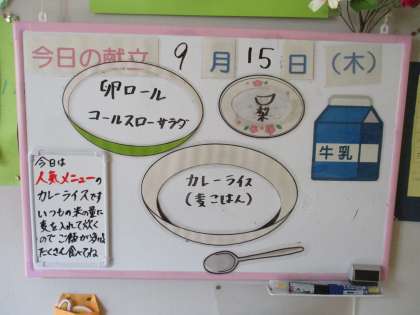 今日の献立 9月15日(木)
卵ロール
コールスローサラダ
梨
牛乳
カレーライス
(麦ごはん)
今日は
人気メニューの
カレーライスです
いつもの米の量に
麦を入れて炊く
のでご飯が
たくさん食べてね